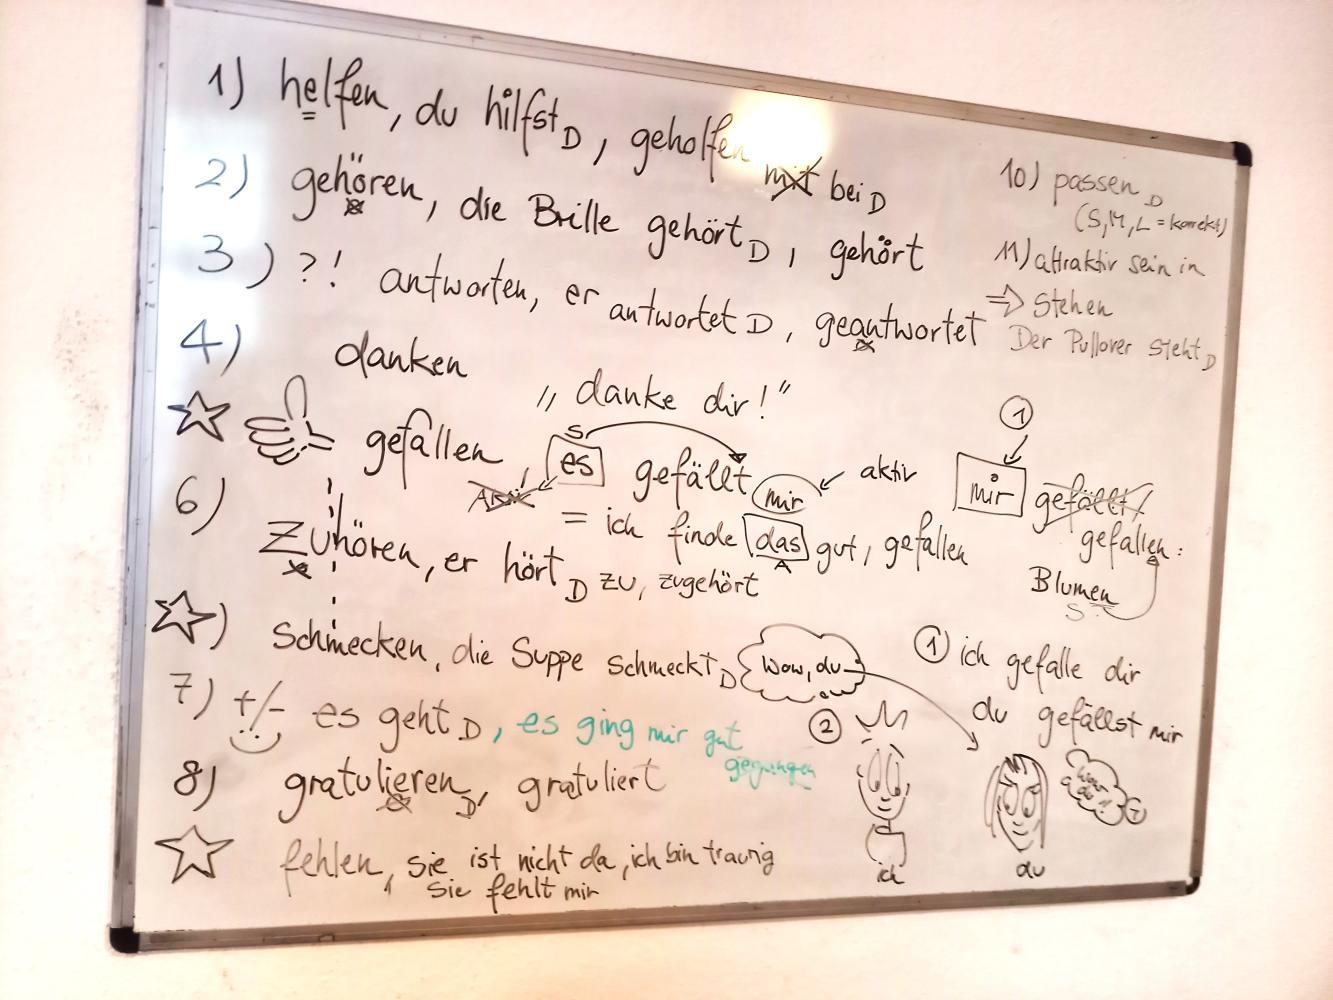 1) helfen, du hilfst D, geholfen mit bei D
2) gehören, die Brille gehört D, gehört
3) ?! antworten, er antwortet D, geantwortet
4) danken
„danke dir!"
gefallen, es gefällt mir
S
aktiv
= ich finde das gut, gefallen
A
6) Zuhören, er hört D zu, zugehört
) Schmecken, die Suppe schmeckt D
7) +/- es geht D, es ging mir gut
gegangen
8) gratulieren D, gratuliert
fehlen, sie ist nicht da, ich bin traurig
sie fehlt mir
10) passen D
(S, M, L = korrekt)
11) attraktiv sein in
⇒ stehen
Der Pullover steht D
1
mir gefällt
gefallen:
Blumen
S
Wow, du
1 ich gefalle dir
du gefällst mir
2
ich
du